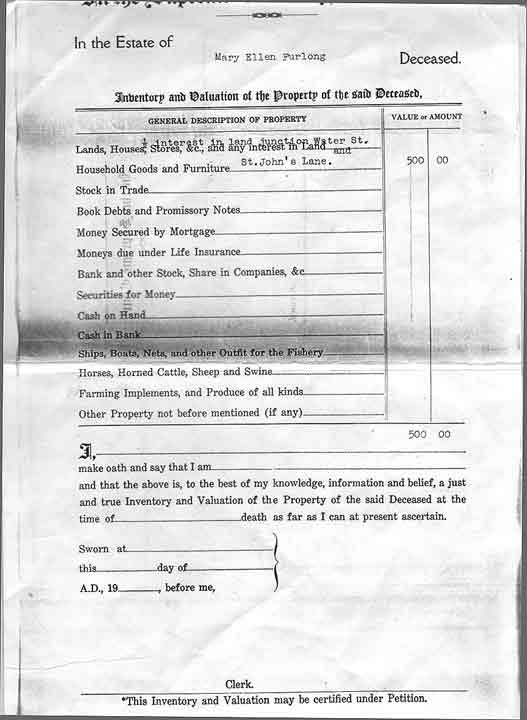 In the Estate of
Mary Ellen Furlong
Deceased.
Inventory and Valuation of the Property of the said Deceased,
GENERAL DESCRIPTION OF PROPERTY
VALUE or AMOUNT
interest in land junction Water St.
Lands, Houses, Stores, &c., and any interest in Land and
Household Goods and Furniture St.John's Lane.
500 00
Stock in Trade
Book Debts and Promissory Notes
Money Secured by Mortgage
Moneys due under Life Insurance
Bank and other Stock, Share in Companies, &c
Securities for Money
Cash on Hand
Cash in Bank
Ships, Boats, Nets, and other Outfit for the Fishery
Horses, Horned Cattle, Sheep and Swine
Farming Implements, and Produce of all kinds
Other Property not before mentioned (if any)
500 00
I,
make oath and say that I am
and that the above is, to the best of my knowledge, information and belief, a just
and true Inventory and Valuation of the Property of the said Deceased at the
time of death as far as I can at present ascertain.
Sworn at
this day of
A.D., 19 , before me,
Clerk.
*This Inventory and Valuation may be certified under Petition.